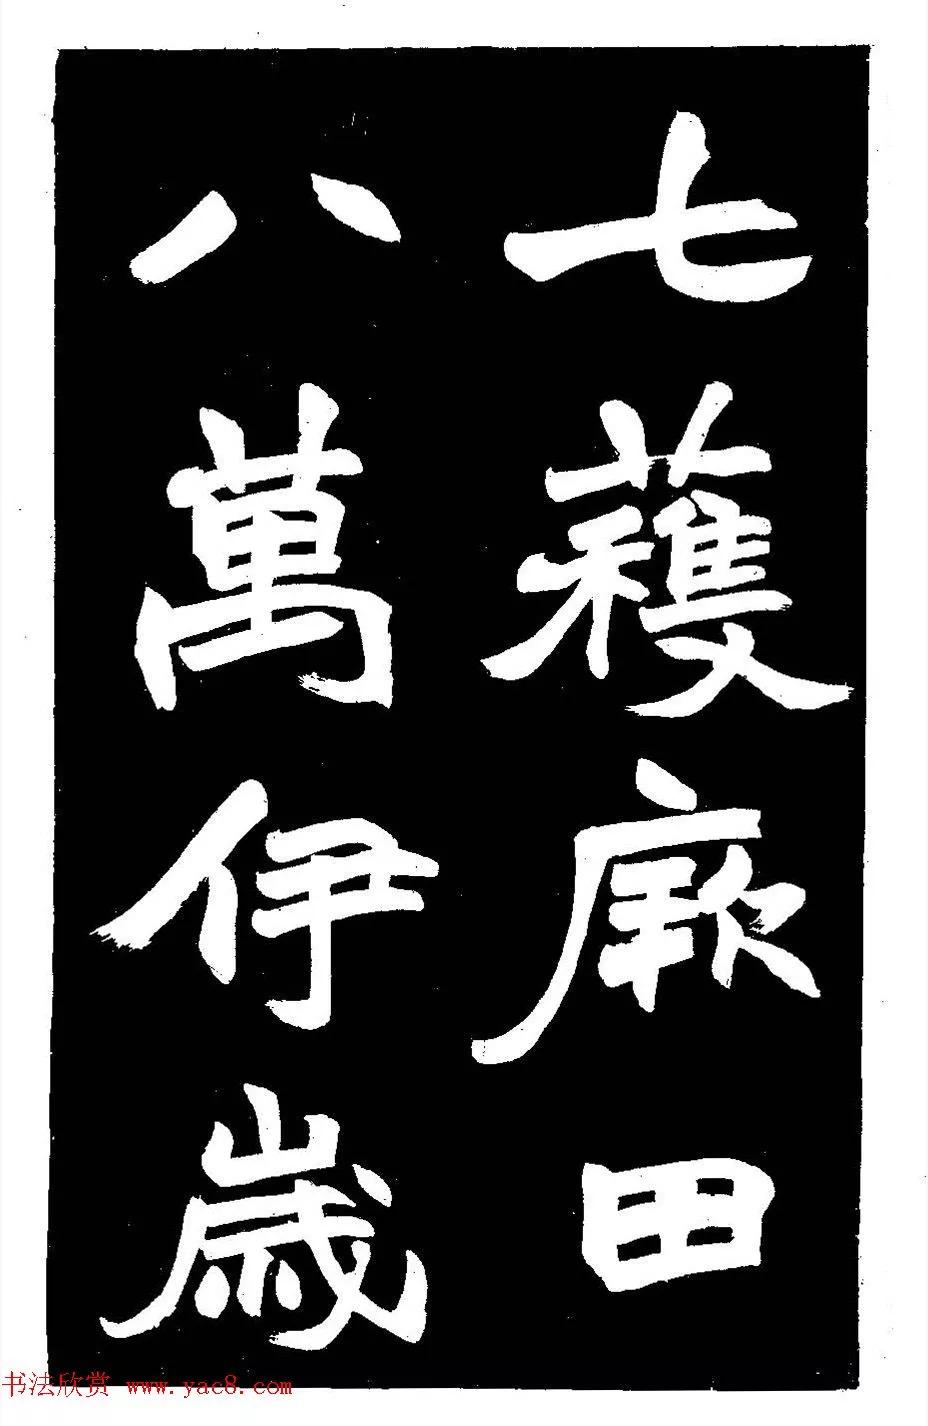 七蒦厥田
八萬伊歲
书法欣赏 www.yac8.com